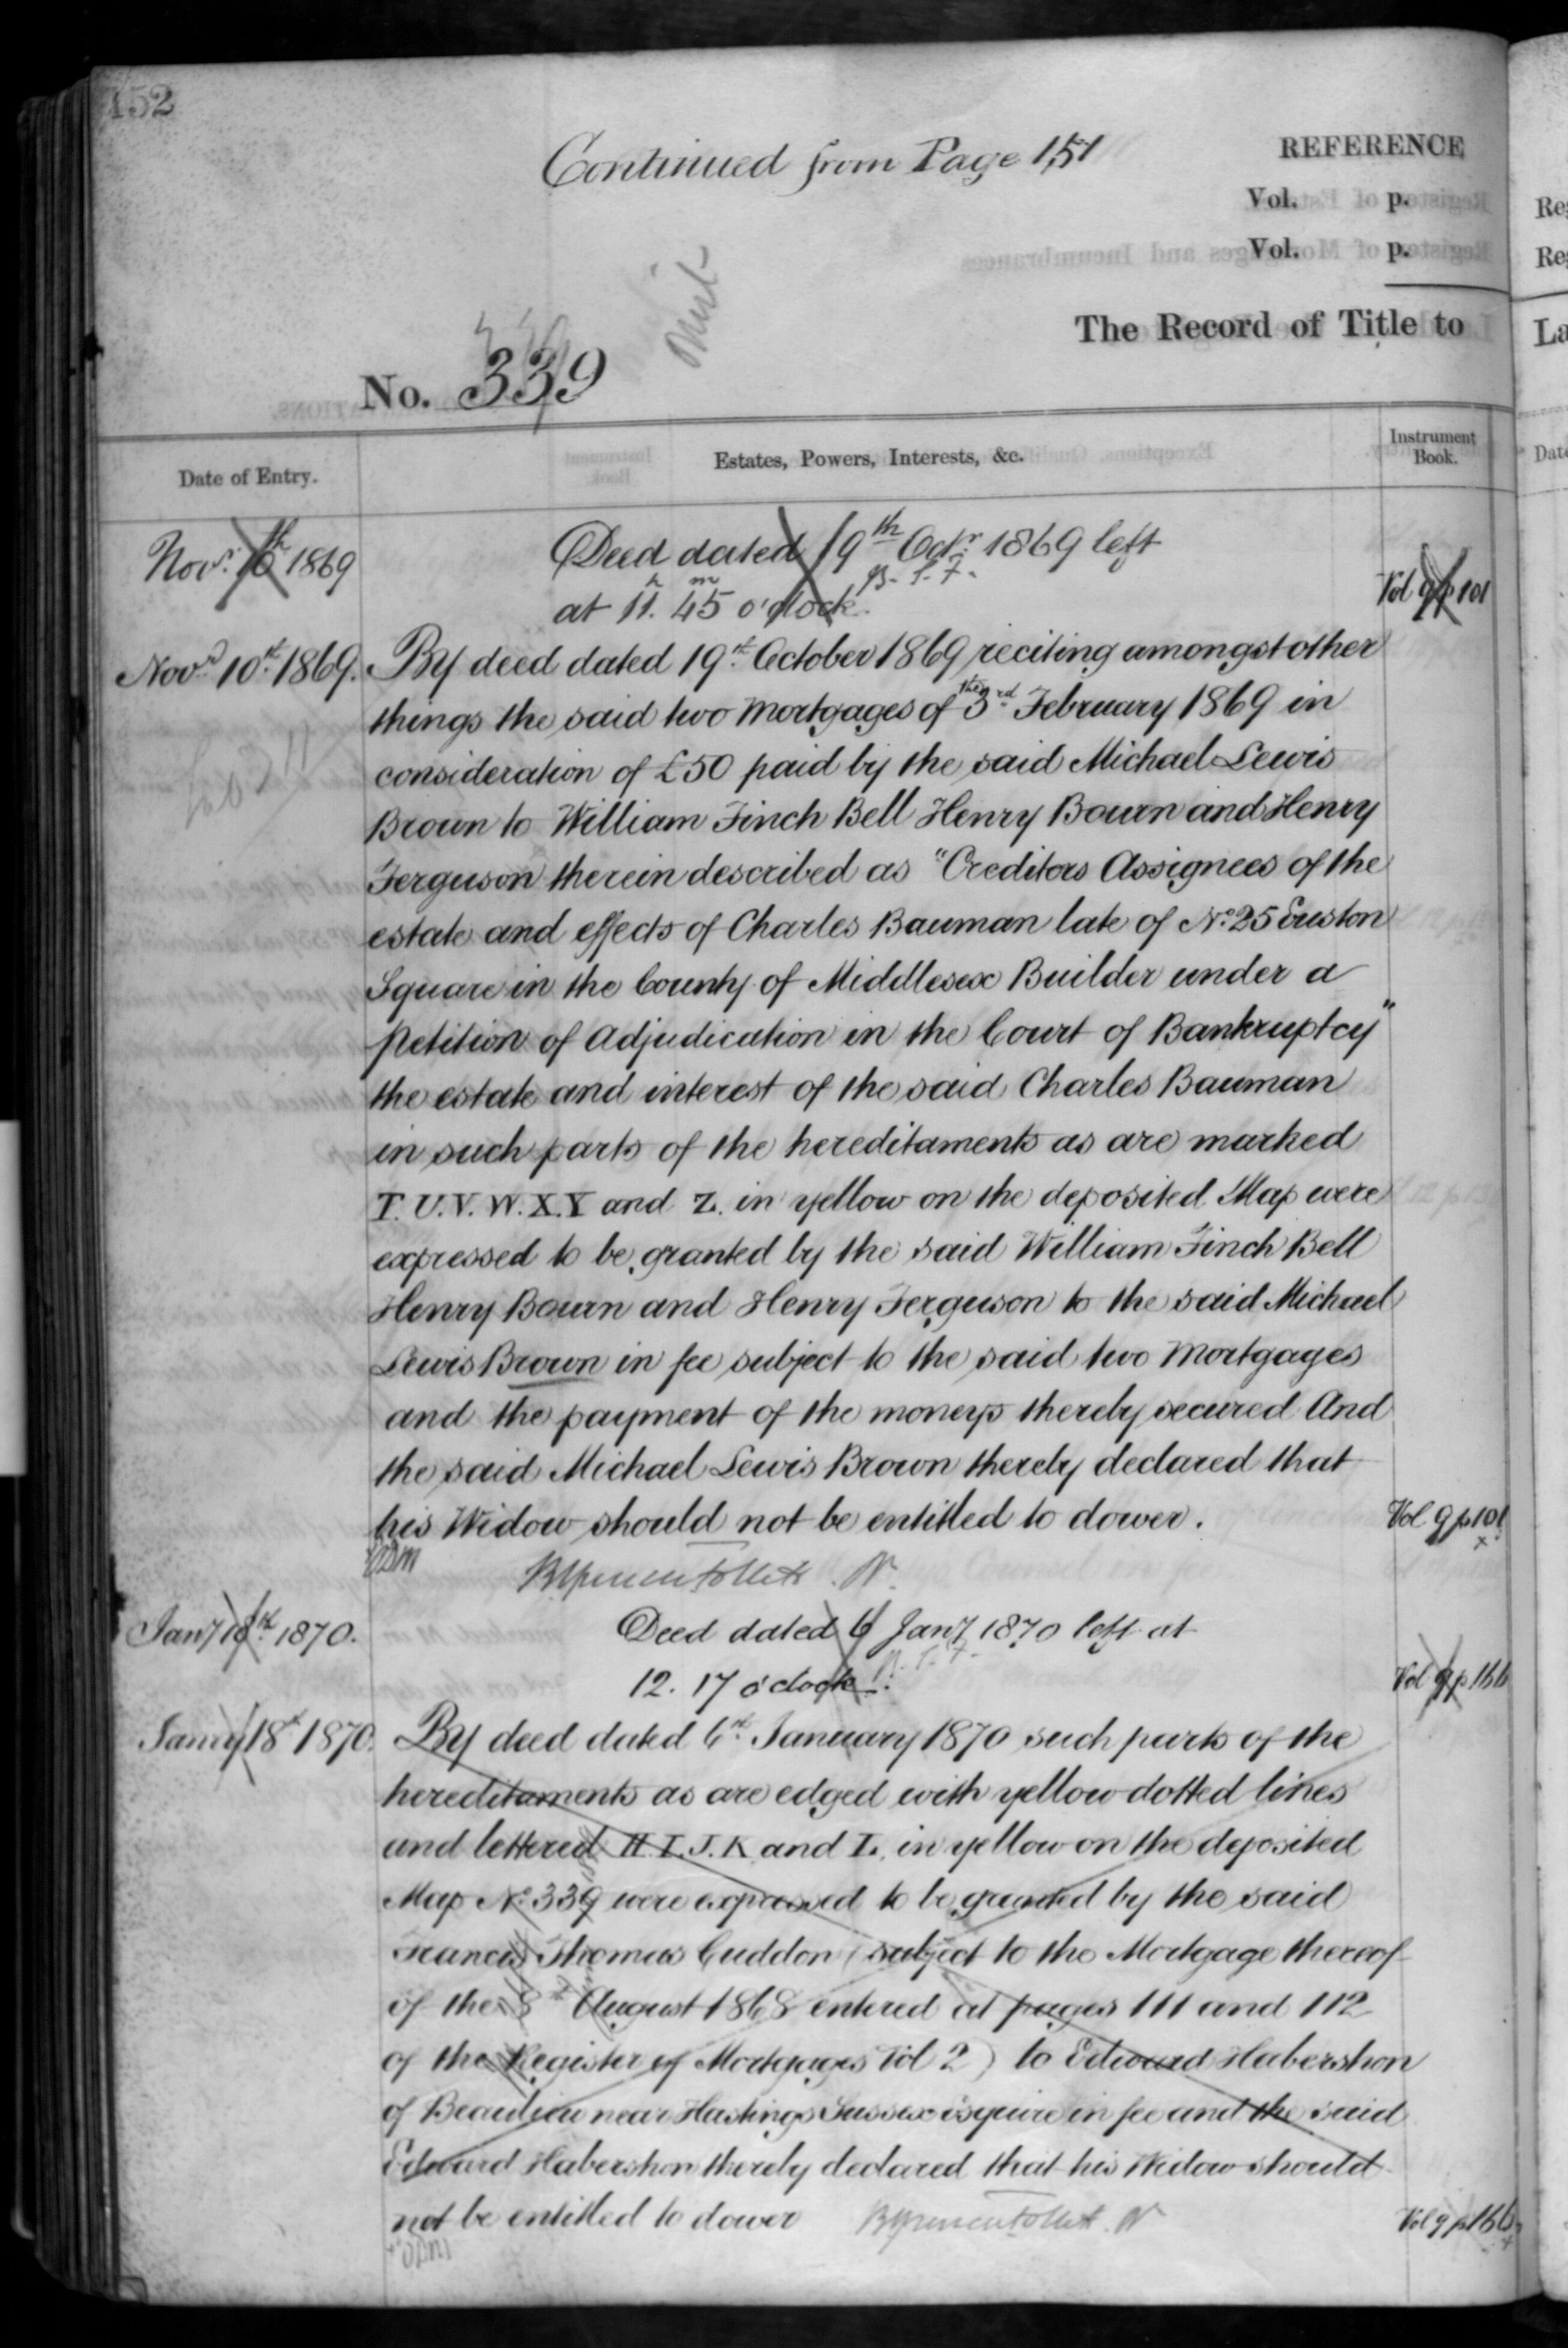 152
Continued from Page 151
REFERENCE
Vol. p.
Vol. p.
The Record of Title to
No. 339
Date of Entry.
Estates, Powers, Interests, &c.
Instrument Book.
Novr. 10th 1869
Deed dated 19th Octr. 1869 left
at 11h. 45m o'clock. B. P. F.
Vol 9 p 101
Novr. 10th. 1869.
By deed dated 19th. October 1869 reciting amongst other
things the said two Mortgages of the 3rd. February 1869 in
consideration of £50 paid by the said Michael Lewis
Brown to William Finch Bell Henry Bourn and Henry
Ferguson therein described as "Creditors Assignees of the
estate and effects of Charles Bauman late of No. 25 Euston
Square in the County of Middlesex Builder under a
Petition of Adjudication in the Court of Bankruptcy"
the estate and interest of the said Charles Bauman
in such parts of the hereditaments as are marked
T. U. V. W. X. Y and Z. in yellow on the deposited Map were
expressed to be granted by the said William Finch Bell
Henry Bourn and Henry Ferguson to the said Michael
Lewis Brown in fee subject to the said two Mortgages
and the payment of the moneys thereby secured And
the said Michael Lewis Brown thereby declared that
his Widow should not be entitled to dower.
Vol 9 p 101
x
Jany 18th. 1870.
Deed dated 6 Jany 1870 left at
12. 17 o'clock.
Vol 9 p 166
Jany 18th 1870.
By deed dated 6th. January 1870 such parts of the
hereditaments as are edged with yellow dotted lines
and lettered H. I. J. K and L. in yellow on the deposited
Map No. 339 were expressed to be granted by the said
Francis Thomas Cuddon (subject to the Mortgage thereof
of the 8th August 1868 entered at pages 111 and 112
of the Register of Mortgages Vol 2) to Edward Habershon
of Beaulieu near Hastings Sussex Esquire in fee and the said
Edward Habershon thereby declared that his Widow should
not be entitled to dower
Vol 9 p 166